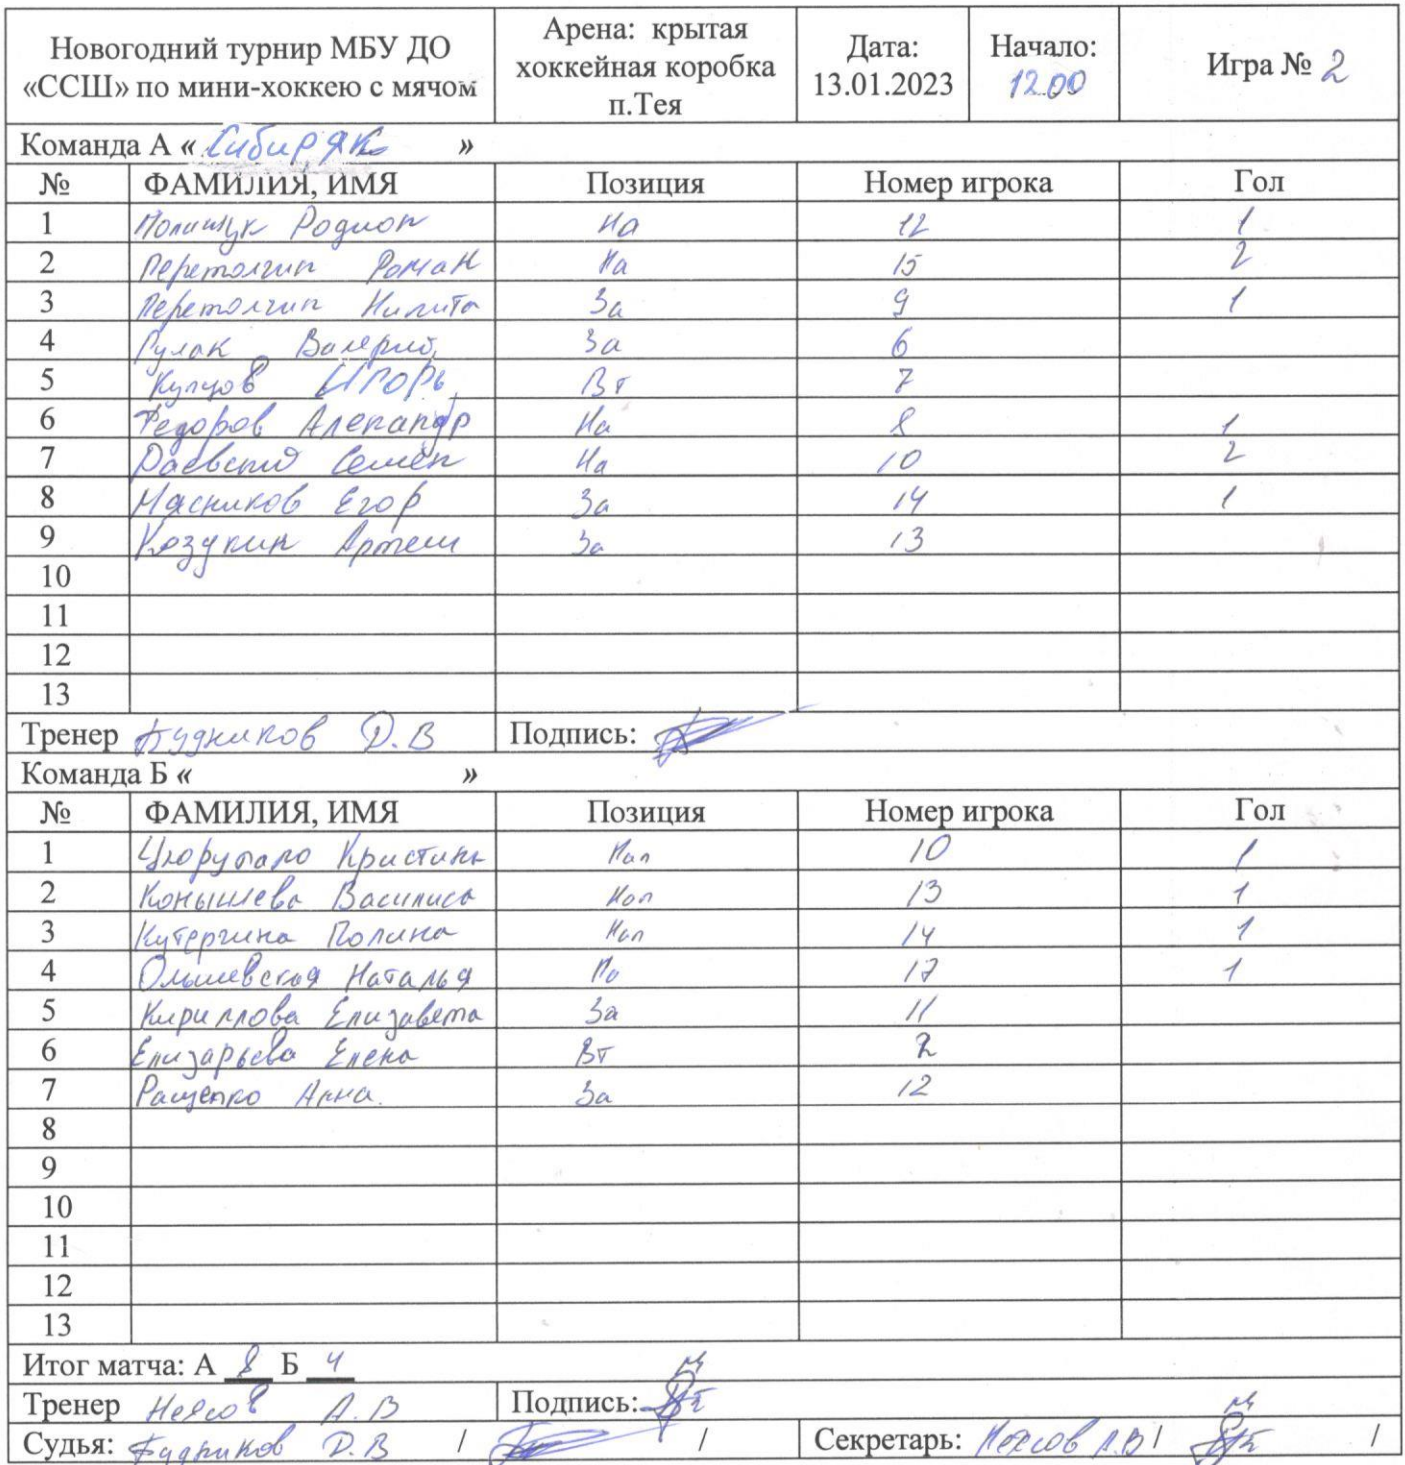 Новогодний турнир МБУ ДО «ССШ» по мини-хоккею с мячом Арена: крытая хоккейная коробка п.Тея Дата: 13.01.2023 Начало: 12.00 Игра № 2
Команда А « Сибиряк »
№ ФАМИЛИЯ, ИМЯ Позиция Номер игрока Гол
1 Полищук Родион На 12 1
2 Перетолчин Роман На 15 2
3 Перетолчин Никита За 9 1
4 Гулак Валерий За 6
5 Купцов Игорь Вт 7
6 Федоров Александр На 8 1
7 Раевский Семен На 10 2
8 Мясников Егор За 14 1
9 Артем За 13
10
11
12
13
Тренер Будников Д.В Подпись:
Команда Б « »
№ ФАМИЛИЯ, ИМЯ Позиция Номер игрока Гол
1 Кристина Нап 10 1
2 Конышева Василиса Нап 13 1
3 Кутергина Полина Нап 14 1
4 Ольшевская Наталья На 17 1
5 Кириллова Елизавета За 11
6 Елизарьева Елена Вт 2
7 Ращенко Анна. За 12
8
9
10
11
12
13
Итог матча: А 8 Б 4
Тренер А.В Подпись:
Судья: Будников Д.В / / Секретарь: А.В / /